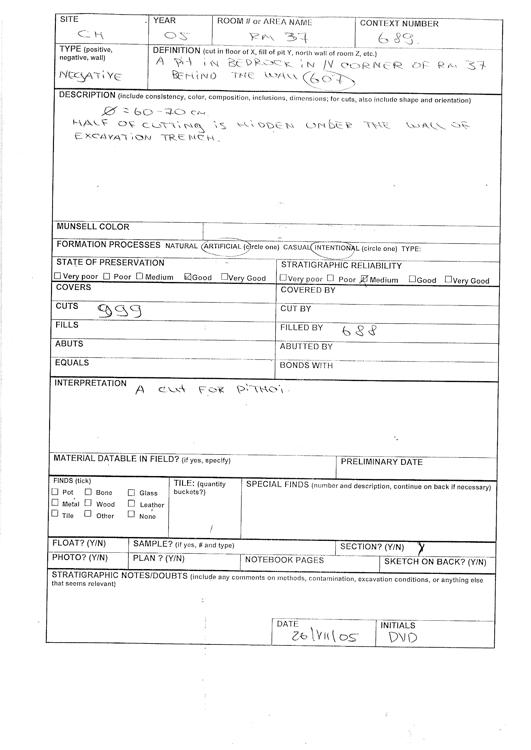 SITE YEAR ROOM # or AREA NAME CONTEXT NUMBER
CH 05 RM 37 689.
TYPE (positive, negative, wall) DEFINITION (cut in floor of X, fill of pit Y, north wall of room Z, etc.)
NEGATIVE A PIT IN BEDROCK IN N CORNER OF RM 37
BEHIND THE WALL (607)
DESCRIPTION (include consistency, color, composition, inclusions, dimensions; for cuts, also include shape and orientation)
Ø = 60-70 cm
HALF OF CUTTING IS HIDDEN UNDER THE WALL OF
EXCAVATION TRENCH.
MUNSELL COLOR
FORMATION PROCESSES NATURAL ARTIFICIAL (circle one) CASUAL INTENTIONAL (circle one) TYPE:
STATE OF PRESERVATION STRATIGRAPHIC RELIABILITY
☐ Very poor ☐ Poor ☐ Medium ☑ Good ☐ Very Good ☐ Very poor ☐ Poor ☑ Medium ☐ Good ☐ Very Good
COVERS COVERED BY
CUTS 999 CUT BY
FILLS FILLED BY 688
ABUTS ABUTTED BY
EQUALS BONDS WITH
INTERPRETATION A CUT FOR PITHOI.
MATERIAL DATABLE IN FIELD? (if yes, specify) PRELIMINARY DATE
FINDS (tick) TILE: (quantity buckets?) SPECIAL FINDS (number and description, continue on back if necessary)
☐ Pot ☐ Bone ☐ Glass
☐ Metal ☐ Wood ☐ Leather
☐ Tile ☐ Other ☐ None
/
FLOAT? (Y/N) SAMPLE? (if yes, # and type) SECTION? (Y/N) Y
PHOTO? (Y/N) PLAN ? (Y/N) NOTEBOOK PAGES SKETCH ON BACK? (Y/N)
STRATIGRAPHIC NOTES/DOUBTS (include any comments on methods, contamination, excavation conditions, or anything else
that seems relevant)
DATE INITIALS
26/VII/05 DVD